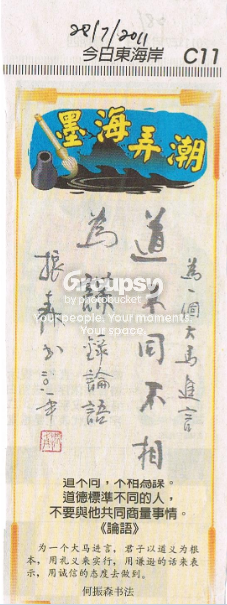 28/7/2011
今日東海岸 C11
墨海弄潮
為一個大马進言
道不同不相
為謀錄論語
振森书二〇一一年
Groupsy
by photobucket
Your people. Your moment.
Your space.
道不同，不相為謀。
道德標準不同的人，
不要與他共同商量事情。
《論語》
为一个大马进言，君子以道义为根
本，用礼义来实行，用谦逊的话来表
示，用诚信的态度去做到。
何振森书法